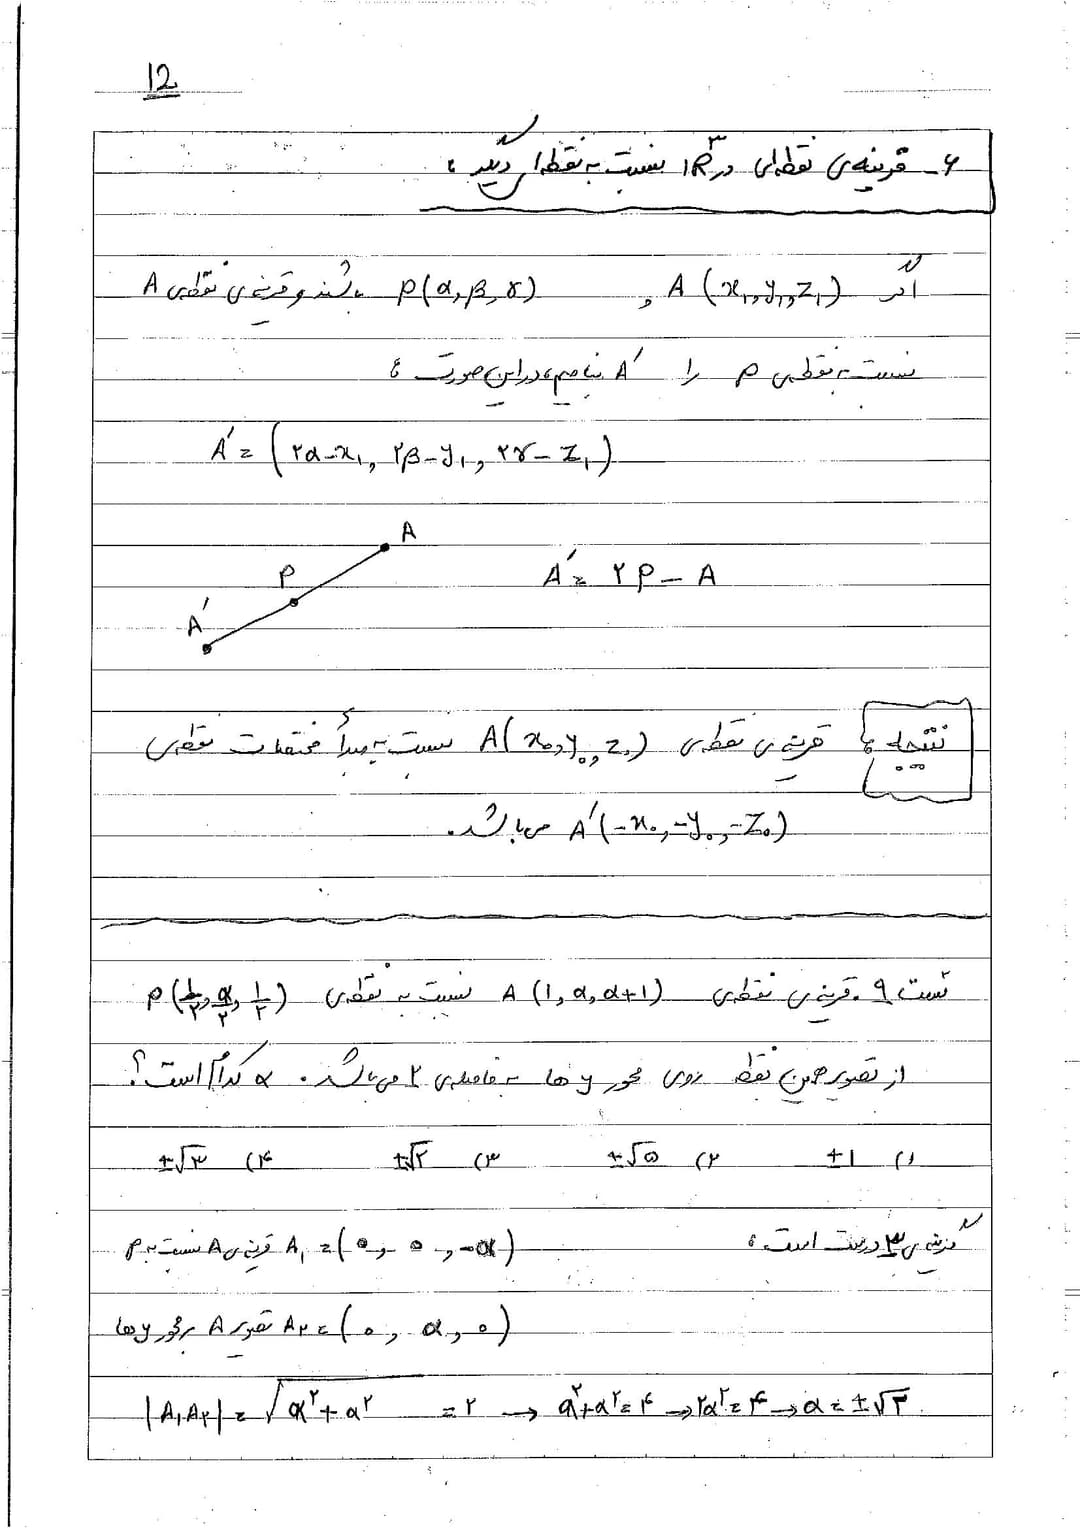 12
۶- قرینه‌ی نقطه‌ای در IR³ نسبت به نقطه‌ای دیگر :
اگر A (x₁, y₁, z₁) و P(α, β, γ) باشند و قرینه‌ی نقطه‌ی A
نسبت به نقطه‌ی P را A′ بنامیم، در این صورت :
A′ = (۲α-x₁, ۲β-y₁, ۲γ-z₁)
A
P
A′
A′ = ۲P - A
نتیجه : قرینه‌ی نقطه‌ی A(x₀, y₀, z₀) نسبت به مبدأ مختصات نقطه‌ی
A′(-x₀, -y₀, -z₀) می‌باشد.
تست ۹. قرینه‌ی نقطه‌ی A (1, α, α+1) نسبت به نقطه‌ی P(۱/۲, α/۲, ۱/۲)
از تصویر همین نقطه روی محور y ها به فاصله‌ی ۲ می‌باشد. α کدام است؟
۱) ±۱ ۲) ±√۵ ۳) ±√۲ ۴) ±√۳
گزینه‌ی ۳ درست است :
A₁ = (۰, ۰, -α) قرینه‌ی A نسبت به P
A₂ = (۰, α, ۰) تصویر A بر محور y ها
|A₁A₂| = √α²+α² = ۲ → α²+α²=۴ → ۲α²=۴ → α = ±√۲